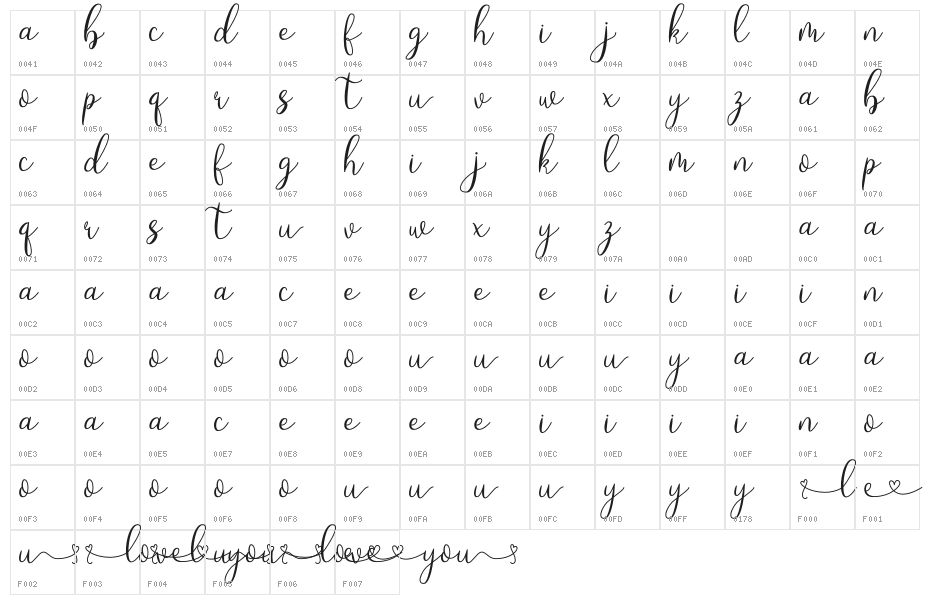 a b c d e f g h i j k l m n
0041 0042 0043 0044 0045 0046 0047 0048 0049 004A 004B 004C 004D 004E
o p q r s t u v w x y z a b
004F 0050 0051 0052 0053 0054 0055 0056 0057 0058 0059 005A 0061 0062
c d e f g h i j k l m n o p
0063 0064 0065 0066 0067 0068 0069 006A 006B 006C 006D 006E 006F 0070
q r s t u v w x y z a a
0071 0072 0073 0074 0075 0076 0077 0078 0079 007A 00A0 00AD 00C0 00C1
a a a a c e e e e i i i i n
00C2 00C3 00C4 00C5 00C7 00C8 00C9 00CA 00CB 00CC 00CD 00CE 00CF 00D1
o o o o o o u u u u y a a a
00D2 00D3 00D4 00D5 00D6 00D8 00D9 00DA 00DB 00DC 00DD 00E0 00E1 00E2
a a a c e e e e i i i i n o
00E3 00E4 00E5 00E7 00E8 00E9 00EA 00EB 00EC 00ED 00EE 00EF 00F1 00F2
o o o o o u u u u y y y l e
00F3 00F4 00F5 00F6 00F8 00F9 00FA 00FB 00FC 00FD 00FF 0178 F000 F001
u love you love you
F002 F003 F004 F005 F006 F007